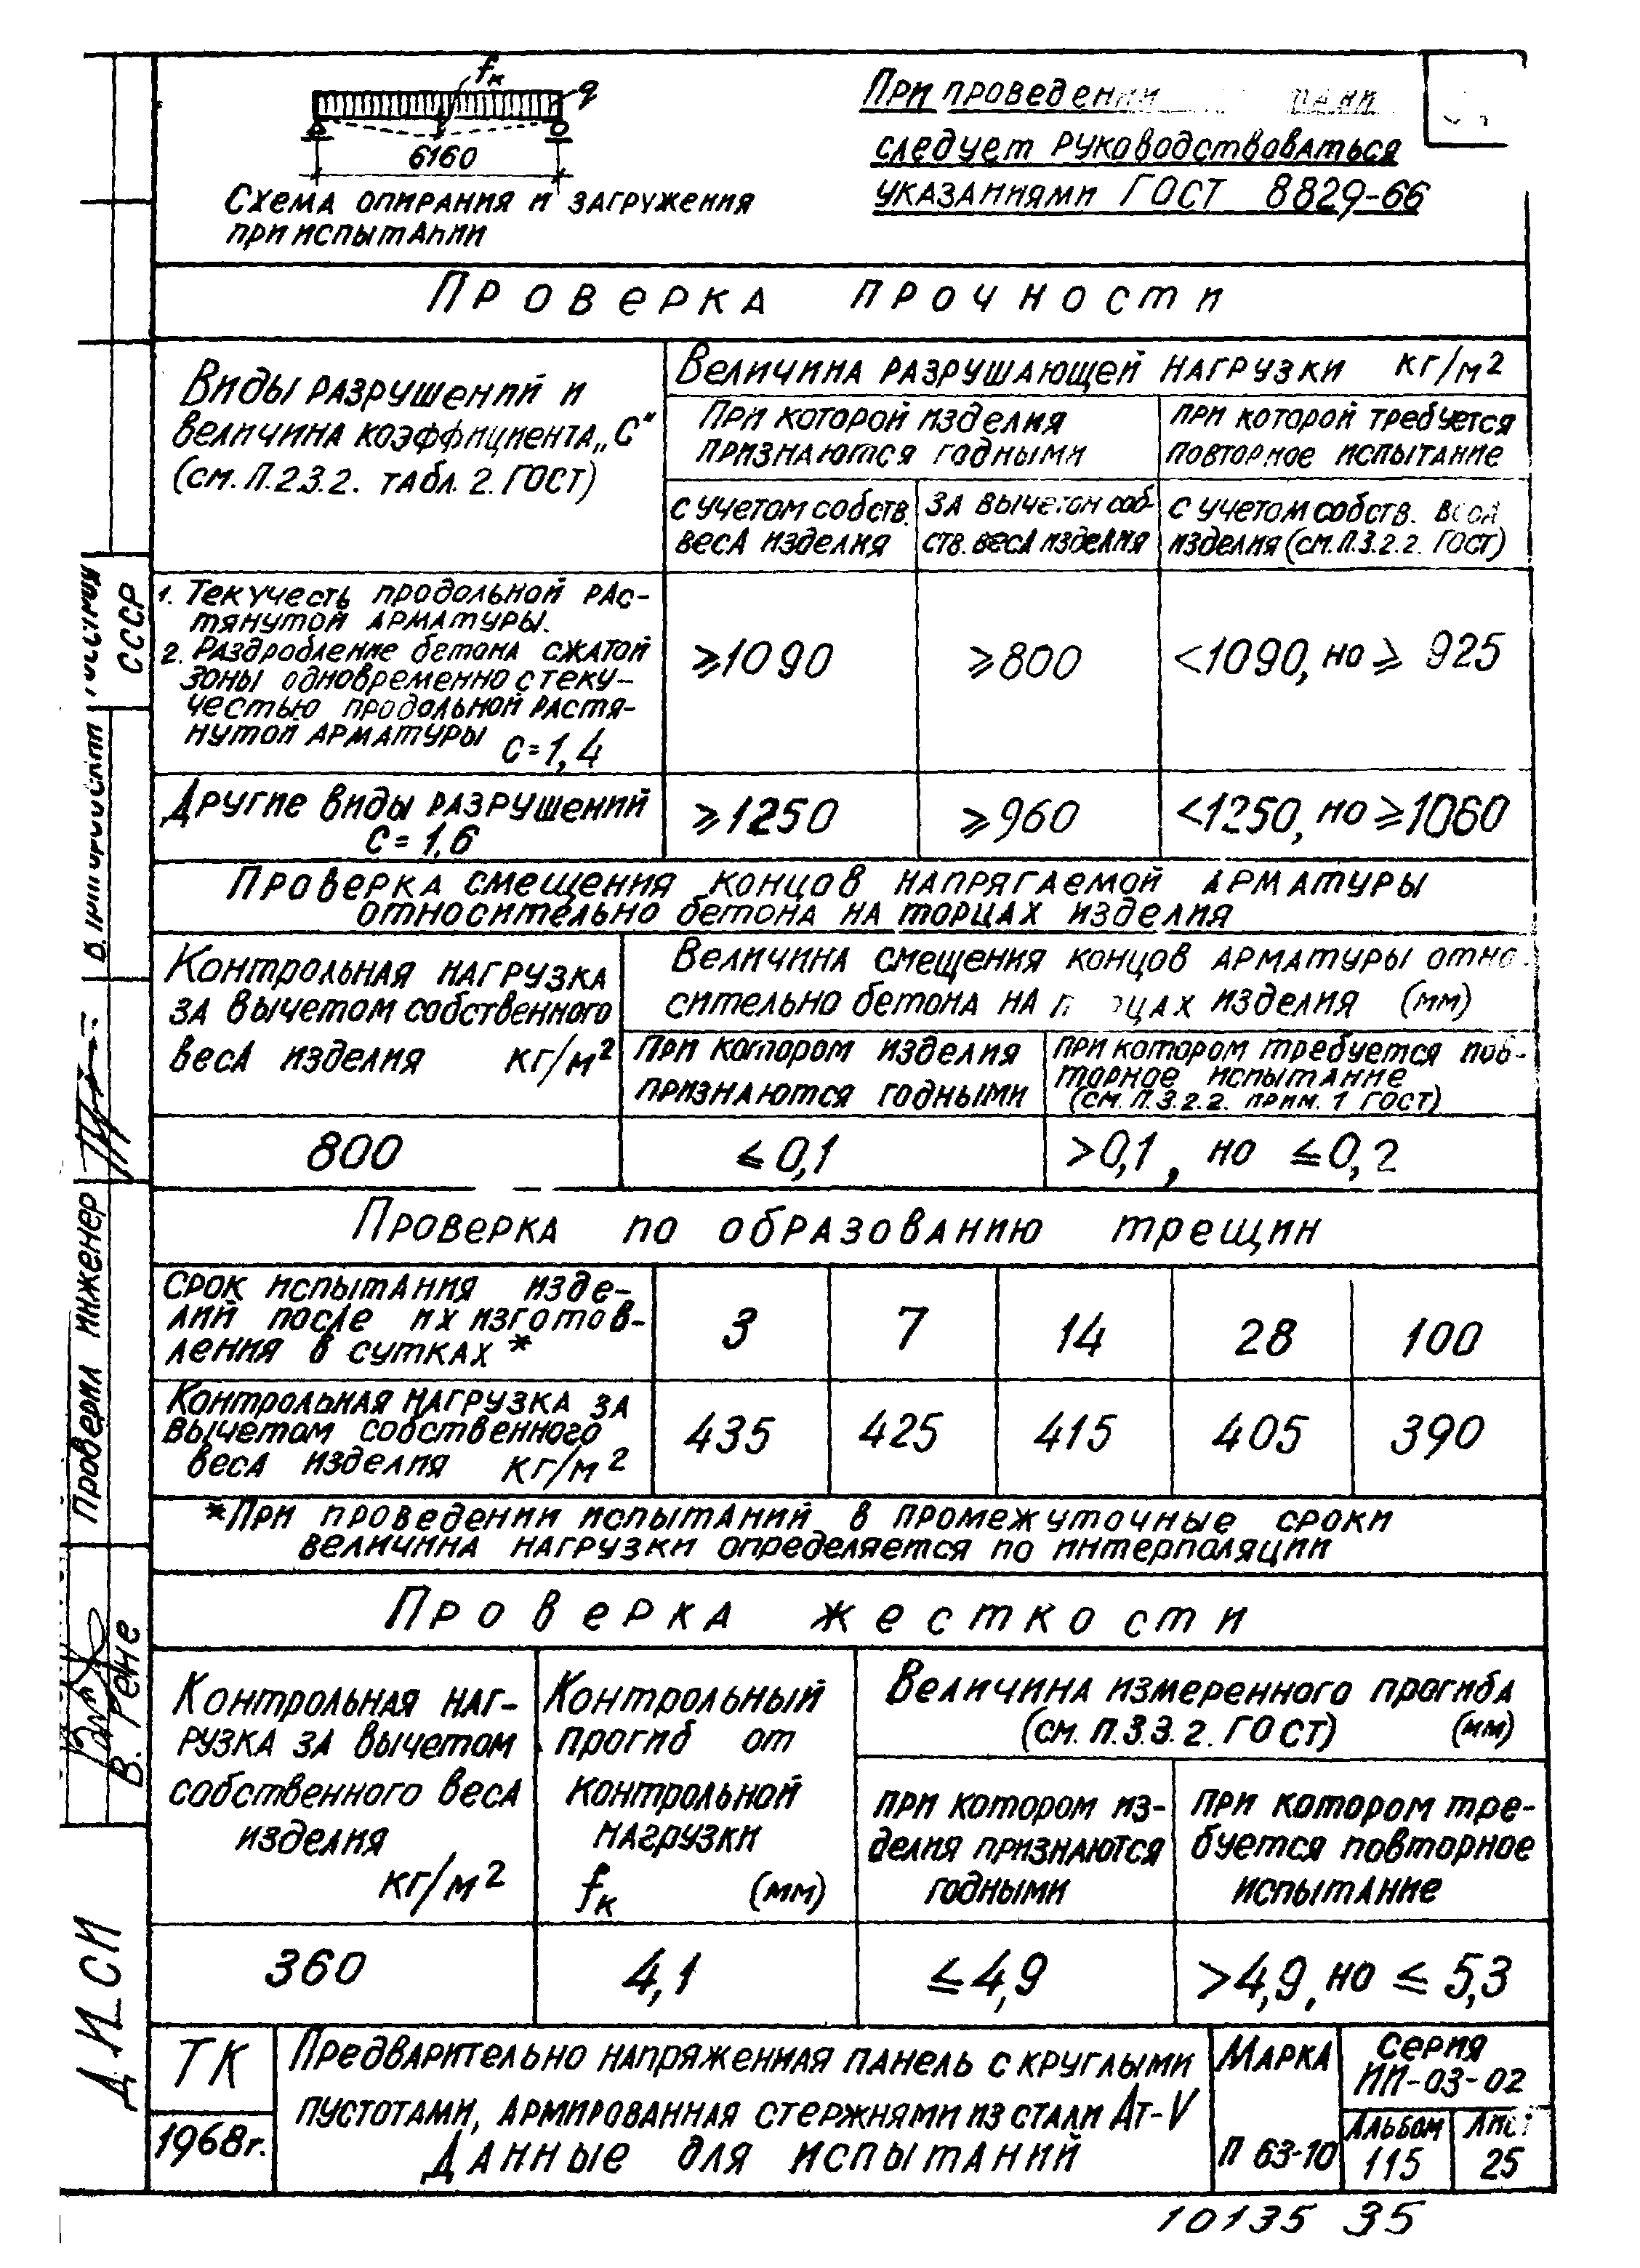 fк
q
6160
Схема опирания и загружения
при испытании
При проведении
следует руководствоваться
указаниями ГОСТ 8829-66
Проверка прочности
Виды разрушений и
величина коэффициента „С“
(см. п.2.3.2. табл. 2. ГОСТ)
Величина разрушающей нагрузки кг/м²
При которой изделия
признаются годными
при которой требуется
повторное испытание
с учетом собств.
веса изделия
за вычетом соб-
ств. веса изделия
с учетом собств. веса
изделия (см. п.3.2.2. ГОСТ)
1. Текучесть продольной рас-
тянутой арматуры.
2. Раздробление бетона сжатой
зоны одновременно с теку-
честью продольной растя-
нутой арматуры С=1,4
⩾1090
⩾800
<1090, но ⩾ 925
Другие виды разрушений
С=1,6
⩾1250
⩾960
<1250, но ⩾1060
Проверка смещения концов напрягаемой арматуры
относительно бетона на торцах изделия
Контрольная нагрузка
за вычетом собственного
веса изделия кг/м²
Величина смещения концов арматуры отно-
сительно бетона на изделия (мм)
при котором изделия
признаются годными
при котором требуется пов-
торное испытание
(см. п.3.2.2. прим. 1 ГОСТ)
800
≤0,1
>0,1, но ≤0,2
Проверка по образованию трещин
Срок испытания изде-
лий после их изготов-
ления в сутках *
3
7
14
28
100
Контрольная нагрузка за
вычетом собственного
веса изделия кг/м²
435
425
415
405
390
*При проведении испытаний в промежуточные сроки
величина нагрузки определяется по интерполяции
Проверка жесткости
Контрольная наг-
рузка за вычетом
собственного веса
изделия
кг/м²
Контрольный
прогиб от
контрольной
нагрузки
fк (мм)
Величина измеренного прогиба
(см. п.3.3.2. ГОСТ) (мм)
при котором из-
делия признаются
годными
при котором тре-
буется повторное
испытание
360
4,1
≤4,9
>4,9, но ≤ 5,3
ТК
1968г.
Предварительно напряженная панель с круглыми
пустотами, армированная стержнями из стали Ат-V
Данные для испытаний
Марка
П 63-10
Серия
ИИ-03-02
Альбом
115
Лист
25
10135 35
СССР
Проверил инженер
В. Рене
ДИСИ